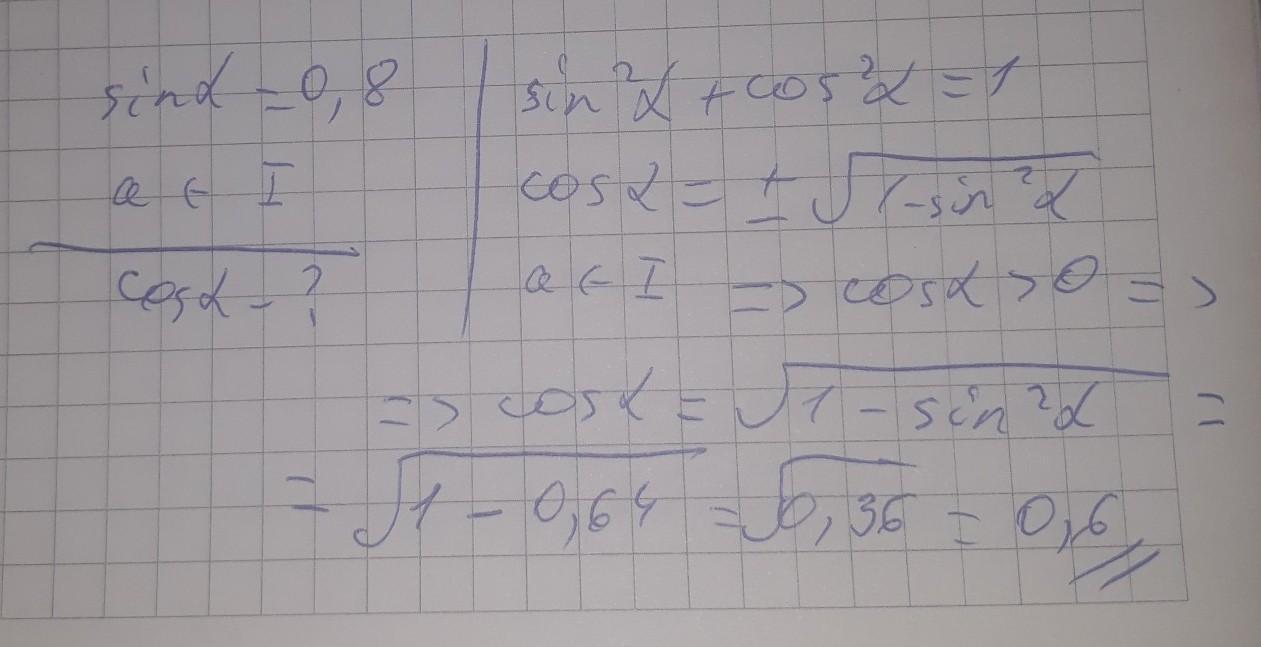 sinα = 0,8
α ∈ I
cosα - ?
sin²α + cos²α = 1
cosα = ± √(1-sin²α)
α ∈ I => cosα > 0 =>
=> cosα = √(1 - sin²α) =
= √(1 - 0,64) = √(0,36) = 0,6